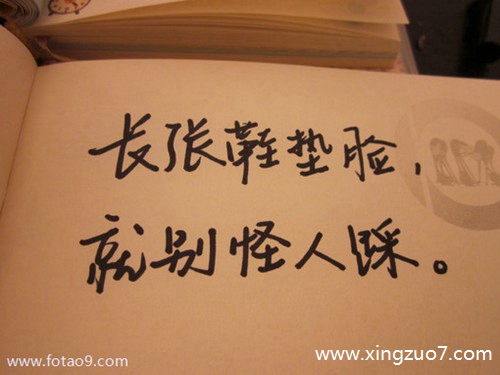 长张鞋垫脸，
就别怪人踩。
www.fotao9.com
www.xingzuo7.com